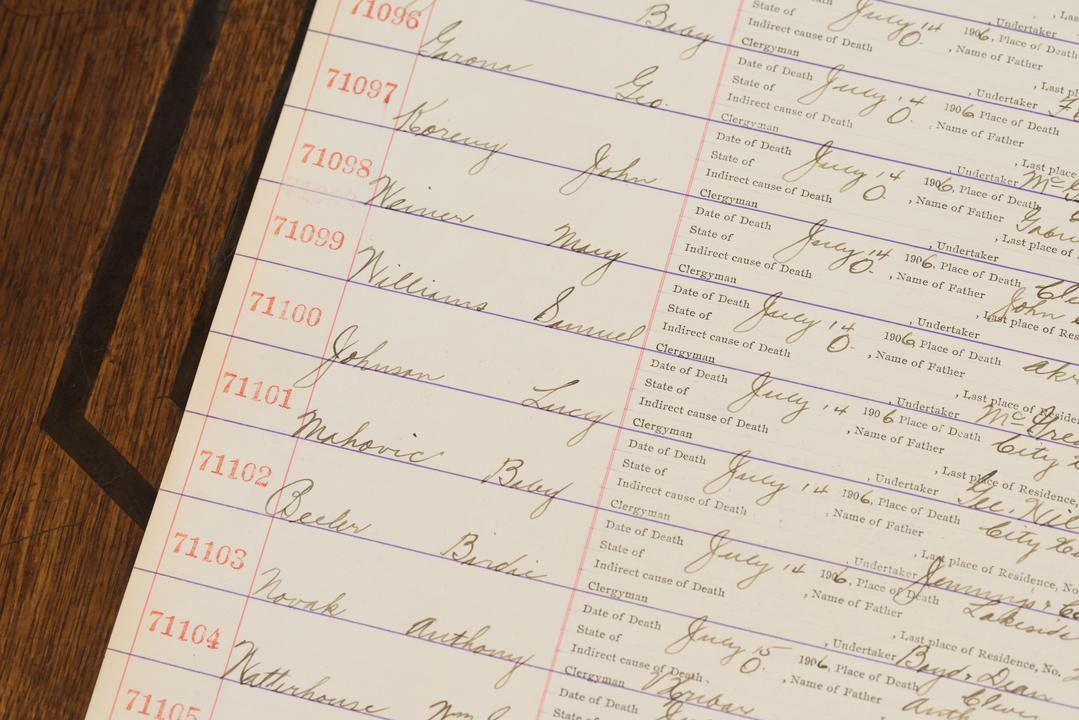 71096 Baby State of July 14 1906, Place of Death
Indirect cause of Death 0. , Name of Father
Clergyman , Undertaker
71097 Garona Geo. Date of Death July 14 1906, Place of Death
State of , Last place of
Indirect cause of Death 0. , Name of Father
Clergyman , Undertaker
71098 Koreny John Date of Death July 14 1906, Place of Death
State of , Last place of
Indirect cause of Death 0. , Name of Father
Clergyman , Undertaker
71099 Weiner Mary Date of Death July 14 1906, Place of Death
State of , Last place of Res
Indirect cause of Death 0. , Name of Father John
Clergyman , Undertaker
71100 Williams Samuel Date of Death July 14 1906, Place of Death
State of , Last place of Reside
Indirect cause of Death 0. , Name of Father
Clergyman , Undertaker
71101 Johnson Lucy Date of Death July 14 1906, Place of Death City
State of , Last place of Residence,
Indirect cause of Death , Name of Father
Clergyman , Undertaker
71102 Mahovic Baby Date of Death July 14 1906, Place of Death City
State of , Last place of Residence, No
Indirect cause of Death , Name of Father
Clergyman , Undertaker Jennings &
71103 Beeler Birdie Date of Death July 14 1906, Place of Death Lakeside
State of , Last place of Residence, No.
Indirect cause of Death , Name of Father
Clergyman , Undertaker Boyd & Dean
71104 Novak Anthony Date of Death July 15 1906, Place of Death
State of
Indirect cause of Death 0. , Name of Father
Clergyman
71105 Wm Date of Death
State of